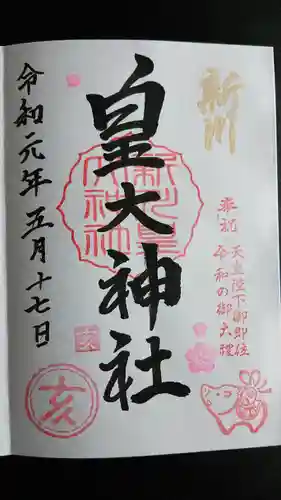 新川
奉祝 天皇陛下御即位
令和の御大禮
皇大神社
新川皇大神社
令和元年五月十七日
亥
亥